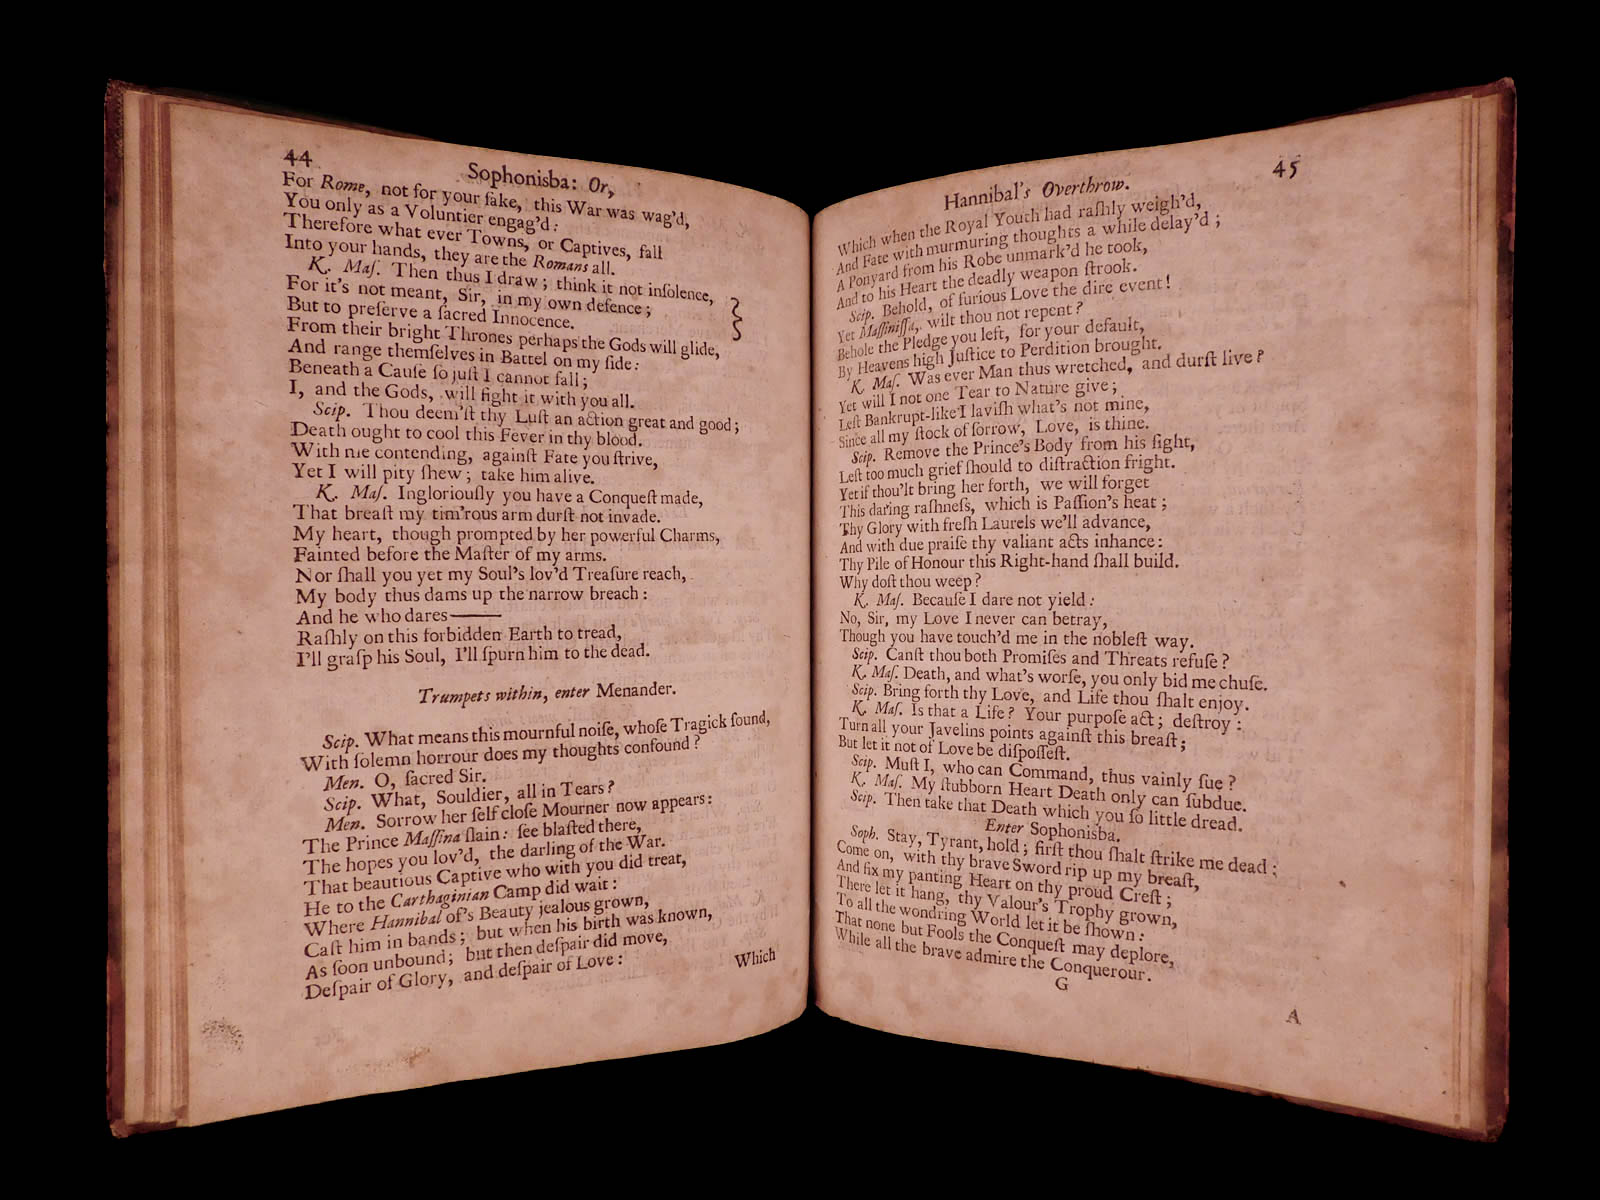 44
Sophonisba: Or,
For Rome, not for your ſake, this War was wag'd,
You only as a Voluntier engag'd:
Therefore what ever Towns, or Captives, fall
Into your hands, they are the Romans all.
K. Maſ. Then thus I draw; think it not inſolence,
For it's not meant, Sir, in my own defence;
But to preſerve a ſacred Innocence.
From their bright Thrones perhaps the Gods will glide,
And range themſelves in Battel on my ſide:
Beneath a Cauſe ſo juſt I cannot fall;
I, and the Gods, will fight it with you all.
Scip. Thou deem'ſt thy Luſt an action great and good;
Death ought to cool this Fever in thy blood.
With me contending, againſt Fate you ſtrive,
Yet I will pity ſhew; take him alive.
K. Maſ. Ingloriouſly you have a Conqueſt made,
That breaſt my tim'rous arm durſt not invade.
My heart, though prompted by her powerful Charms,
Fainted before the Maſter of my arms.
Nor ſhall you yet my Soul's lov'd Treaſure reach,
My body thus dams up the narrow breach:
And he who dares———
Raſhly on this forbidden Earth to tread,
I'll graſp his Soul, I'll ſpurn him to the dead.
Trumpets within, enter Menander.
Scip. What means this mournful noiſe, whoſe Tragick ſound,
With ſolemn horrour does my thoughts confound?
Men. O, ſacred Sir.
Scip. What, Souldier, all in Tears?
Men. Sorrow her ſelf cloſe Mourner now appears:
The Prince Maſſina ſlain: ſee blaſted there,
The hopes you lov'd, the darling of the War.
That beautious Captive who with you did treat,
He to the Carthaginian Camp did wait:
Where Hannibal of's Beauty jealous grown,
Caſt him in bands; but when his birth was known,
As ſoon unbound; but then deſpair did move,
Deſpair of Glory, and deſpair of Love:
Which
Hannibal's Overthrow.
45
Which when the Royal Youth had raſhly weigh'd,
And Fate with murmuring thoughts a while delay'd;
A Ponyard from his Robe unmark'd he took,
And to his Heart the deadly weapon ſtrook.
Scip. Behold, of furious Love the dire event!
Yet Maſſiniſſa, wilt thou not repent?
Behole the Pledge you left, for your default,
By Heavens high Juſtice to Perdition brought.
K. Maſ. Was ever Man thus wretched, and durſt live?
Yet will I not one Tear to Nature give;
Leſt Bankrupt-like I laviſh what's not mine,
Since all my ſtock of ſorrow, Love, is thine.
Scip. Remove the Prince's Body from his ſight,
Leſt too much grief ſhould to diſtraction fright.
Yet if thou'lt bring her forth, we will forget
This daring raſhneſs, which is Paſſion's heat;
Thy Glory with freſh Laurels we'll advance,
And with due praiſe thy valiant acts inhance:
Thy Pile of Honour this Right-hand ſhall build.
Why doſt thou weep?
K. Maſ. Becauſe I dare not yield:
No, Sir, my Love I never can betray,
Though you have touch'd me in the nobleſt way.
Scip. Canſt thou both Promiſes and Threats refuſe?
K. Maſ. Death, and what's worſe, you only bid me chuſe.
Scip. Bring forth thy Love, and Life thou ſhalt enjoy.
K. Maſ. Is that a Life? Your purpoſe act; deſtroy:
Turn all your Javelins points againſt this breaſt;
But let it not of Love be diſpoſſeſt.
Scip. Muſt I, who can Command, thus vainly ſue?
K. Maſ. My ſtubborn Heart Death only can ſubdue.
Scip. Then take that Death which you ſo little dread.
Enter Sophonisba.
Soph. Stay, Tyrant, hold; firſt thou ſhalt ſtrike me dead:
Come on, with thy brave Sword rip up my breaſt,
And fix my panting Heart on thy proud Creſt;
There let it hang, thy Valour's Trophy grown,
To all the wondring World let it be ſhown:
That none but Fools the Conqueſt may deplore,
While all the brave admire the Conquerour.
G
A